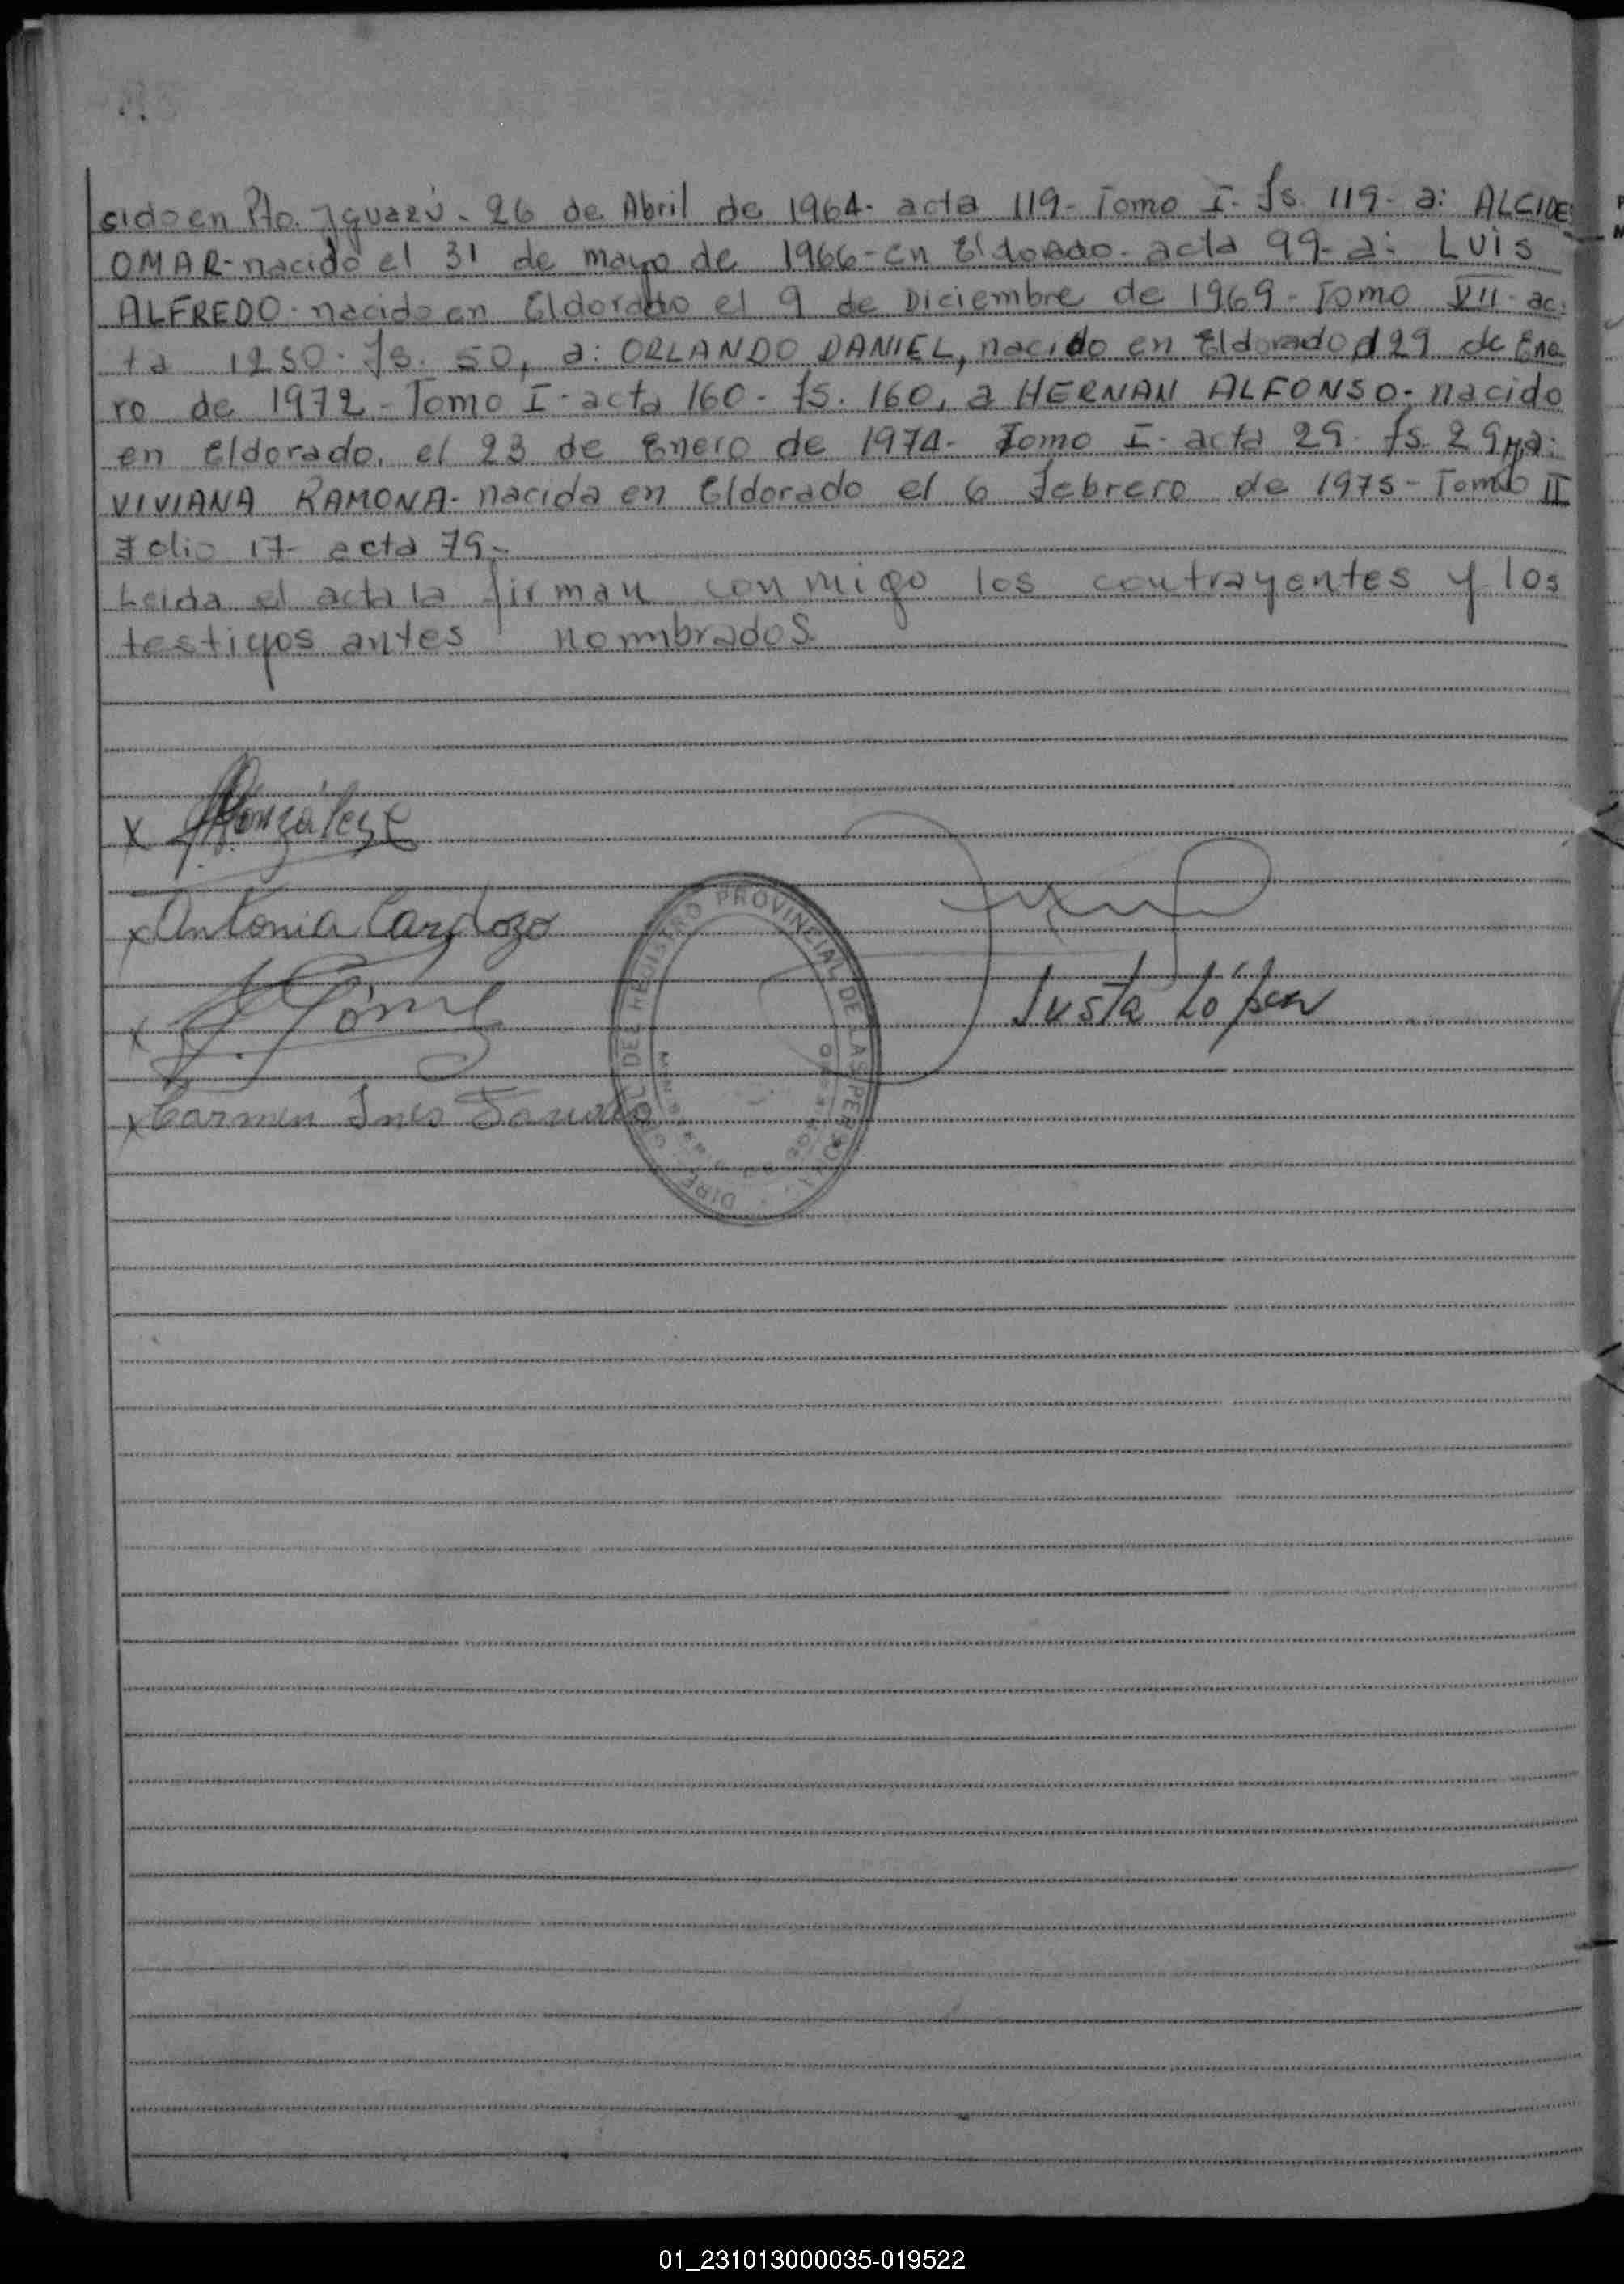 cido en Pto. Iguazú. 26 de Abril de 1964- acta 119- Tomo I- fs. 119- a: ALCIDE
OMAR- nacido el 31 de mayo de 1966- en Eldorado- acta 99- a: LUIS
ALFREDO- nacido en Eldorado el 9 de Diciembre de 1969- Tomo VII- ac-
ta 1250. fs. 50, a: ORLANDO DANIEL, nacido en Eldorado el 29 de Ene
ro de 1972- Tomo I- acta 160- fs. 160, a HERNAN ALFONSO- nacido
en Eldorado, el 23 de Enero de 1974- Tomo I- acta 29- fs. 29 a:
VIVIANA RAMONA- nacida en Eldorado el 6 febrero de 1975- Tomo II
Folio 17- acta 79-
Leida el acta la firman conmigo los contrayentes y los
testigos antes nombrados
x González
x Antonia Cardozo
x Gómez
Justa López
x Carmen Inés
DIREC. GRAL. DEL REGISTRO PROVINCIAL DE LAS PERSONAS
01_231013000035-019522